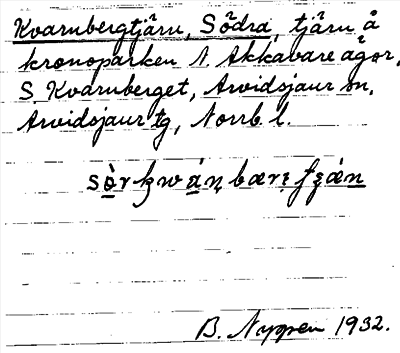 Kvarnbergtjärn, Södra, tjärn å
kronoparken N. Akkavare ägor,
S. Kvarnberget, Arvidsjaur sn,
Arvidsjaur tg, Norrb. l.
B. Nygren 1932.